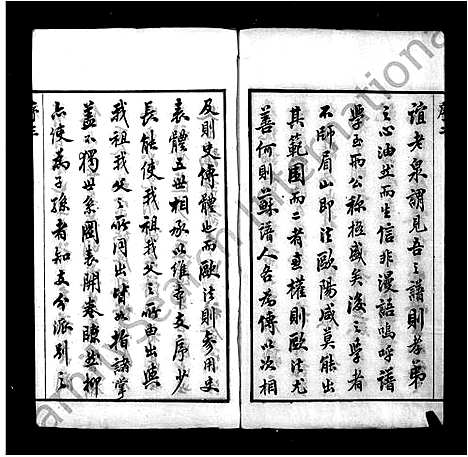 序二
誼老泉謂見吾之譜則孝弟
之心油然而生信非漫語嗚呼譜
學至而公稱極盛矣後之學者
不師眉山即法歐陽咸莫能出
其範圍而二者直權則歐法尤
善何則蘇譜人各為傳以次相
及則史傳體也而歐法則參用史
表體五世相承以維章支序少
長能使我祖我父之所由出與
我祖我父之所同出皆如指諸掌
蓋不獨世系圖表開卷瞭然抑
亦使為子孫者知支分派別之
序三
FamilySearch International